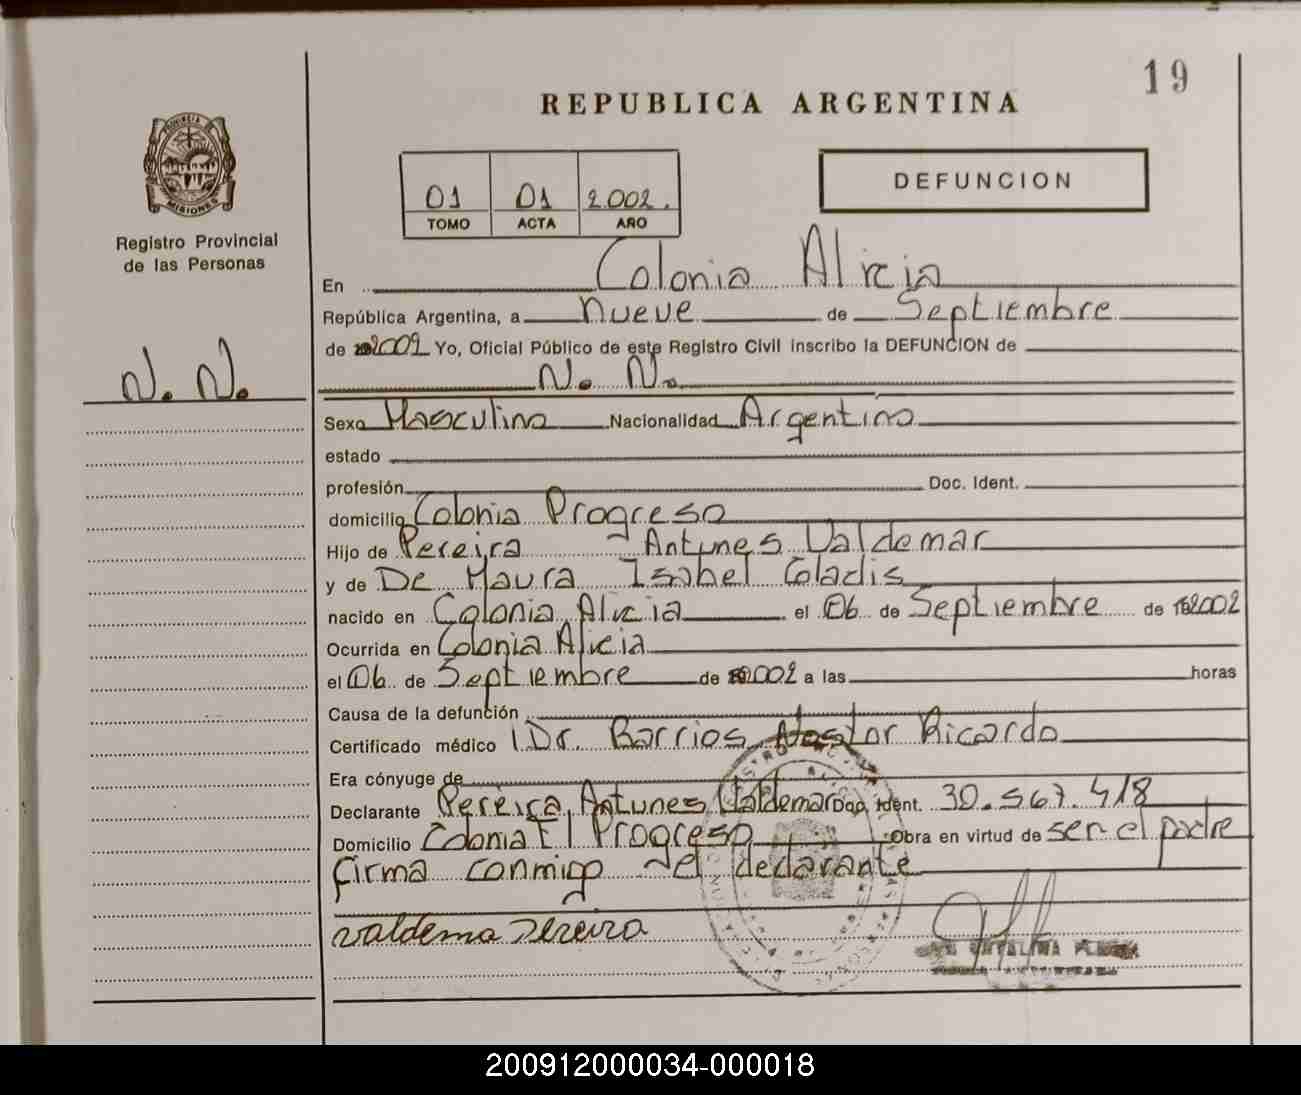 19
REPUBLICA ARGENTINA
PROVINCIA DE
MISIONES
Registro Provincial
de las Personas
01 01 2.002.
TOMO ACTA AÑO
DEFUNCION
En Colonia Alicia
República Argentina, a nueve de Septiembre
de 2002 Yo, Oficial Público de este Registro Civil inscribo la DEFUNCION de
N. N.
N. N.
Sexo Masculino Nacionalidad Argentino
estado
profesión Doc. Ident.
domicilio Colonia Progreso
Hijo de Pereira Antunes Valdemar
y de De Moura Isabel Gladis
nacido en Colonia Alicia el 06 de Septiembre de 2002
Ocurrida en Colonia Alicia
el 06 de Septiembre de 2002 a las horas
Causa de la defunción
Certificado médico Dr. Barrios Nestor Ricardo
Era cónyuge de
Declarante Pereira Antunes Valdemar Doc. Ident. 30.567.418
Domicilio Colonia El Progreso Obra en virtud de ser el padre
firma conmigo el declarante
valdema Pereira
200912000034-000018